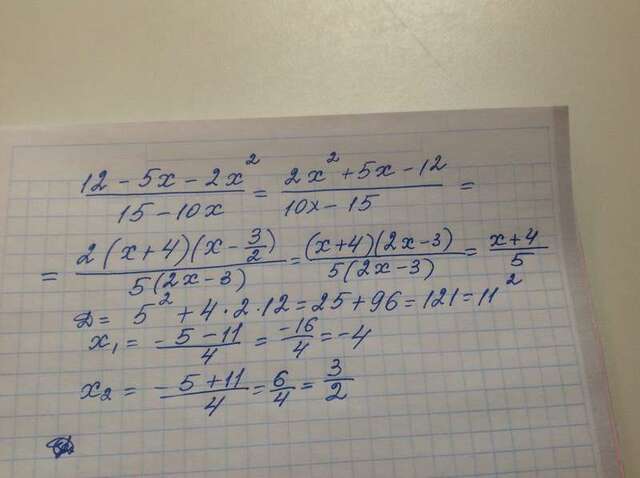 (12 - 5x - 2x²)/(15 - 10x) = (2x² + 5x - 12)/(10x - 15) =
= (2(x+4)(x - 3/2))/(5(2x-3)) = ((x+4)(2x-3))/(5(2x-3)) = (x+4)/5
Д = 5² + 4·2·12 = 25 + 96 = 121 = 11²
x₁ = (-5-11)/4 = -16/4 = -4
x₂ = (-5+11)/4 = 6/4 = 3/2